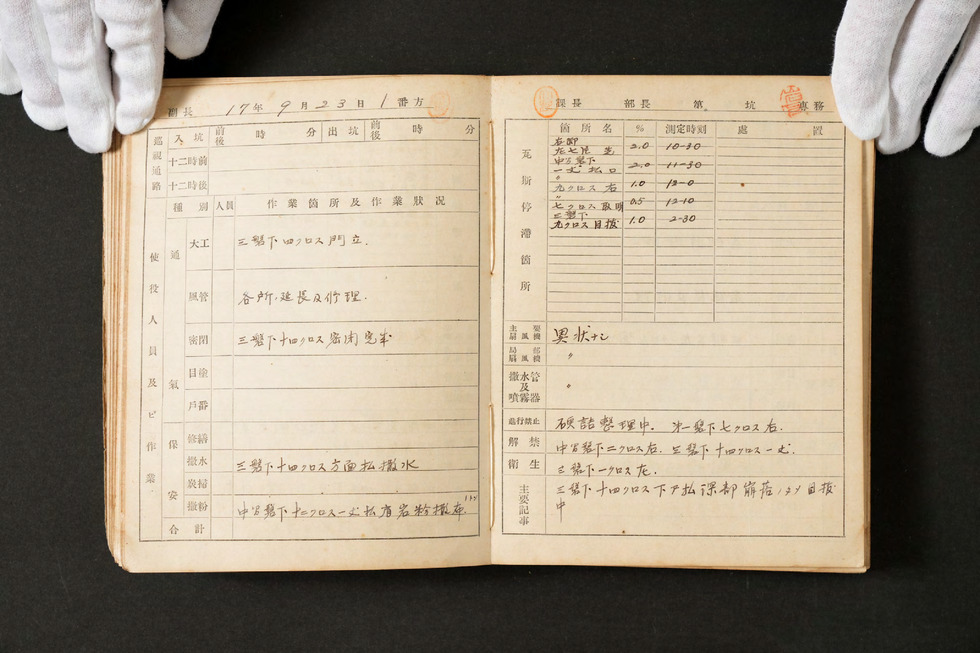 副長 17年 9月 23日 1番方
巡視通路
入坑 前後 時 分 出坑 前後 時 分
十二時前
十二時後
使役人員及ビ作業
種別 人員 作業箇所及作業狀況
通氣
大工 三盤下四クロス門立.
風管 各所延長及修理.
密閉 三盤下十四クロス密閉完半
目塗
戶番
保安
修繕
撒水 三盤下十四クロス方面払撒水
炭掃
撒粉 中宮盤下十二クロス一丈払肩岩粉撒布
合計
課長 部長 第 坑 專務
瓦斯停滯箇所
箇所名 % 測定時刻 處置
2.0 10-30
2.0 11-30
九クロス右 1.0 12-0
七クロス 0.5 12-10
三盤下
九クロス目抜 1.0 2-30
主要扇風機 異狀ナシ
局部扇風機 〃
撒水管及噴霧器 〃
進行禁止 硬詰整理中. 才一盤下七クロス右.
解禁 中宮盤下二クロス右. 三盤下十四クロス一丈.
衛生 三盤下一クロス左.
主要記事 三盤下十四クロス下ア払深部崩落 目抜
中